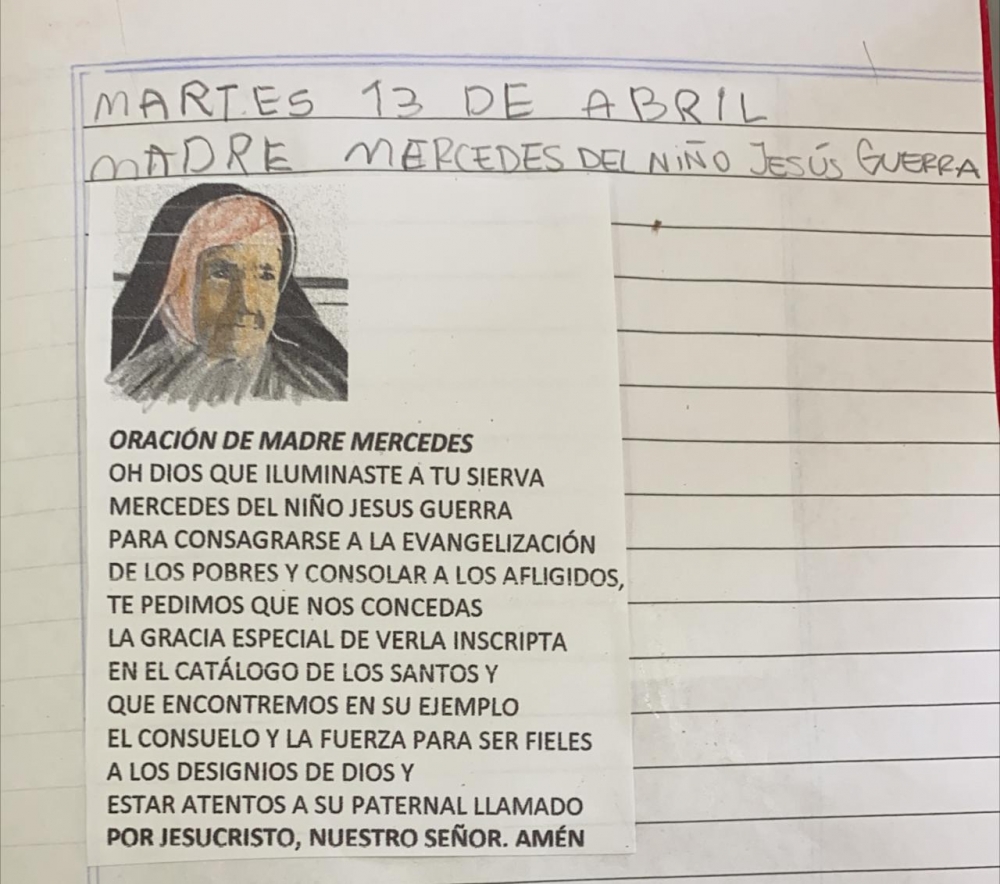 MARTES 13 DE ABRIL
MADRE MERCEDES DEL NIÑO JESÚS GUERRA
ORACIÓN DE MADRE MERCEDES
OH DIOS QUE ILUMINASTE A TU SIERVA
MERCEDES DEL NIÑO JESUS GUERRA
PARA CONSAGRARSE A LA EVANGELIZACIÓN
DE LOS POBRES Y CONSOLAR A LOS AFLIGIDOS,
TE PEDIMOS QUE NOS CONCEDAS
LA GRACIA ESPECIAL DE VERLA INSCRIPTA
EN EL CATÁLOGO DE LOS SANTOS Y
QUE ENCONTREMOS EN SU EJEMPLO
EL CONSUELO Y LA FUERZA PARA SER FIELES
A LOS DESIGNIOS DE DIOS Y
ESTAR ATENTOS A SU PATERNAL LLAMADO
POR JESUCRISTO, NUESTRO SEÑOR. AMÉN